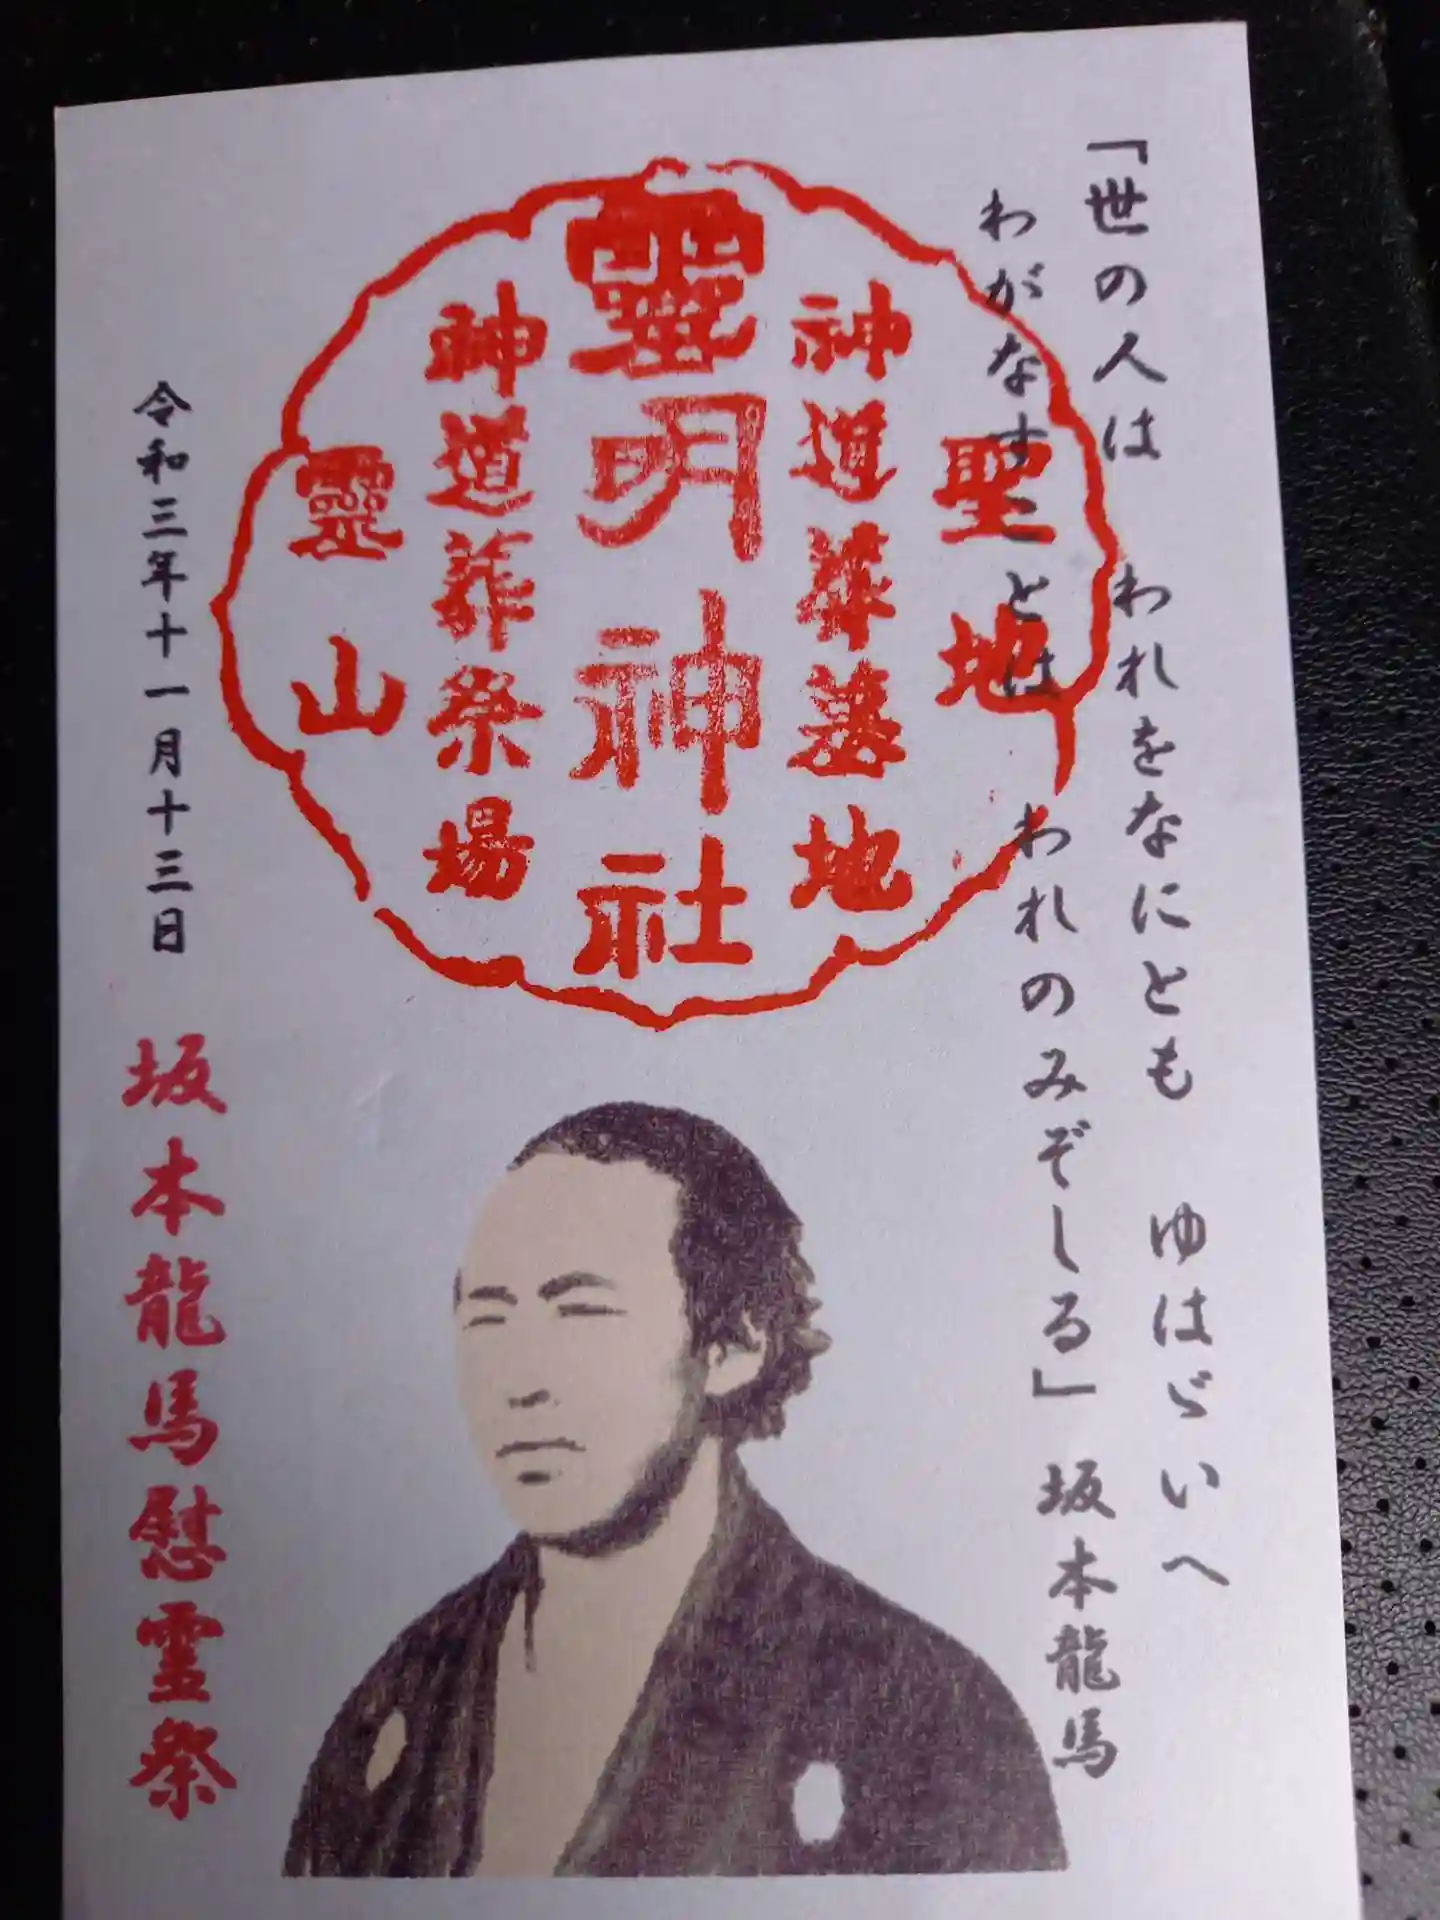 「世の人は われをなにとも ゆはゞいへ
わがなすことは われのみぞしる」坂本龍馬
聖地
神道葬墓地
靈明神社
神道葬祭場
靈山
令和三年十一月十三日
坂本龍馬慰霊祭